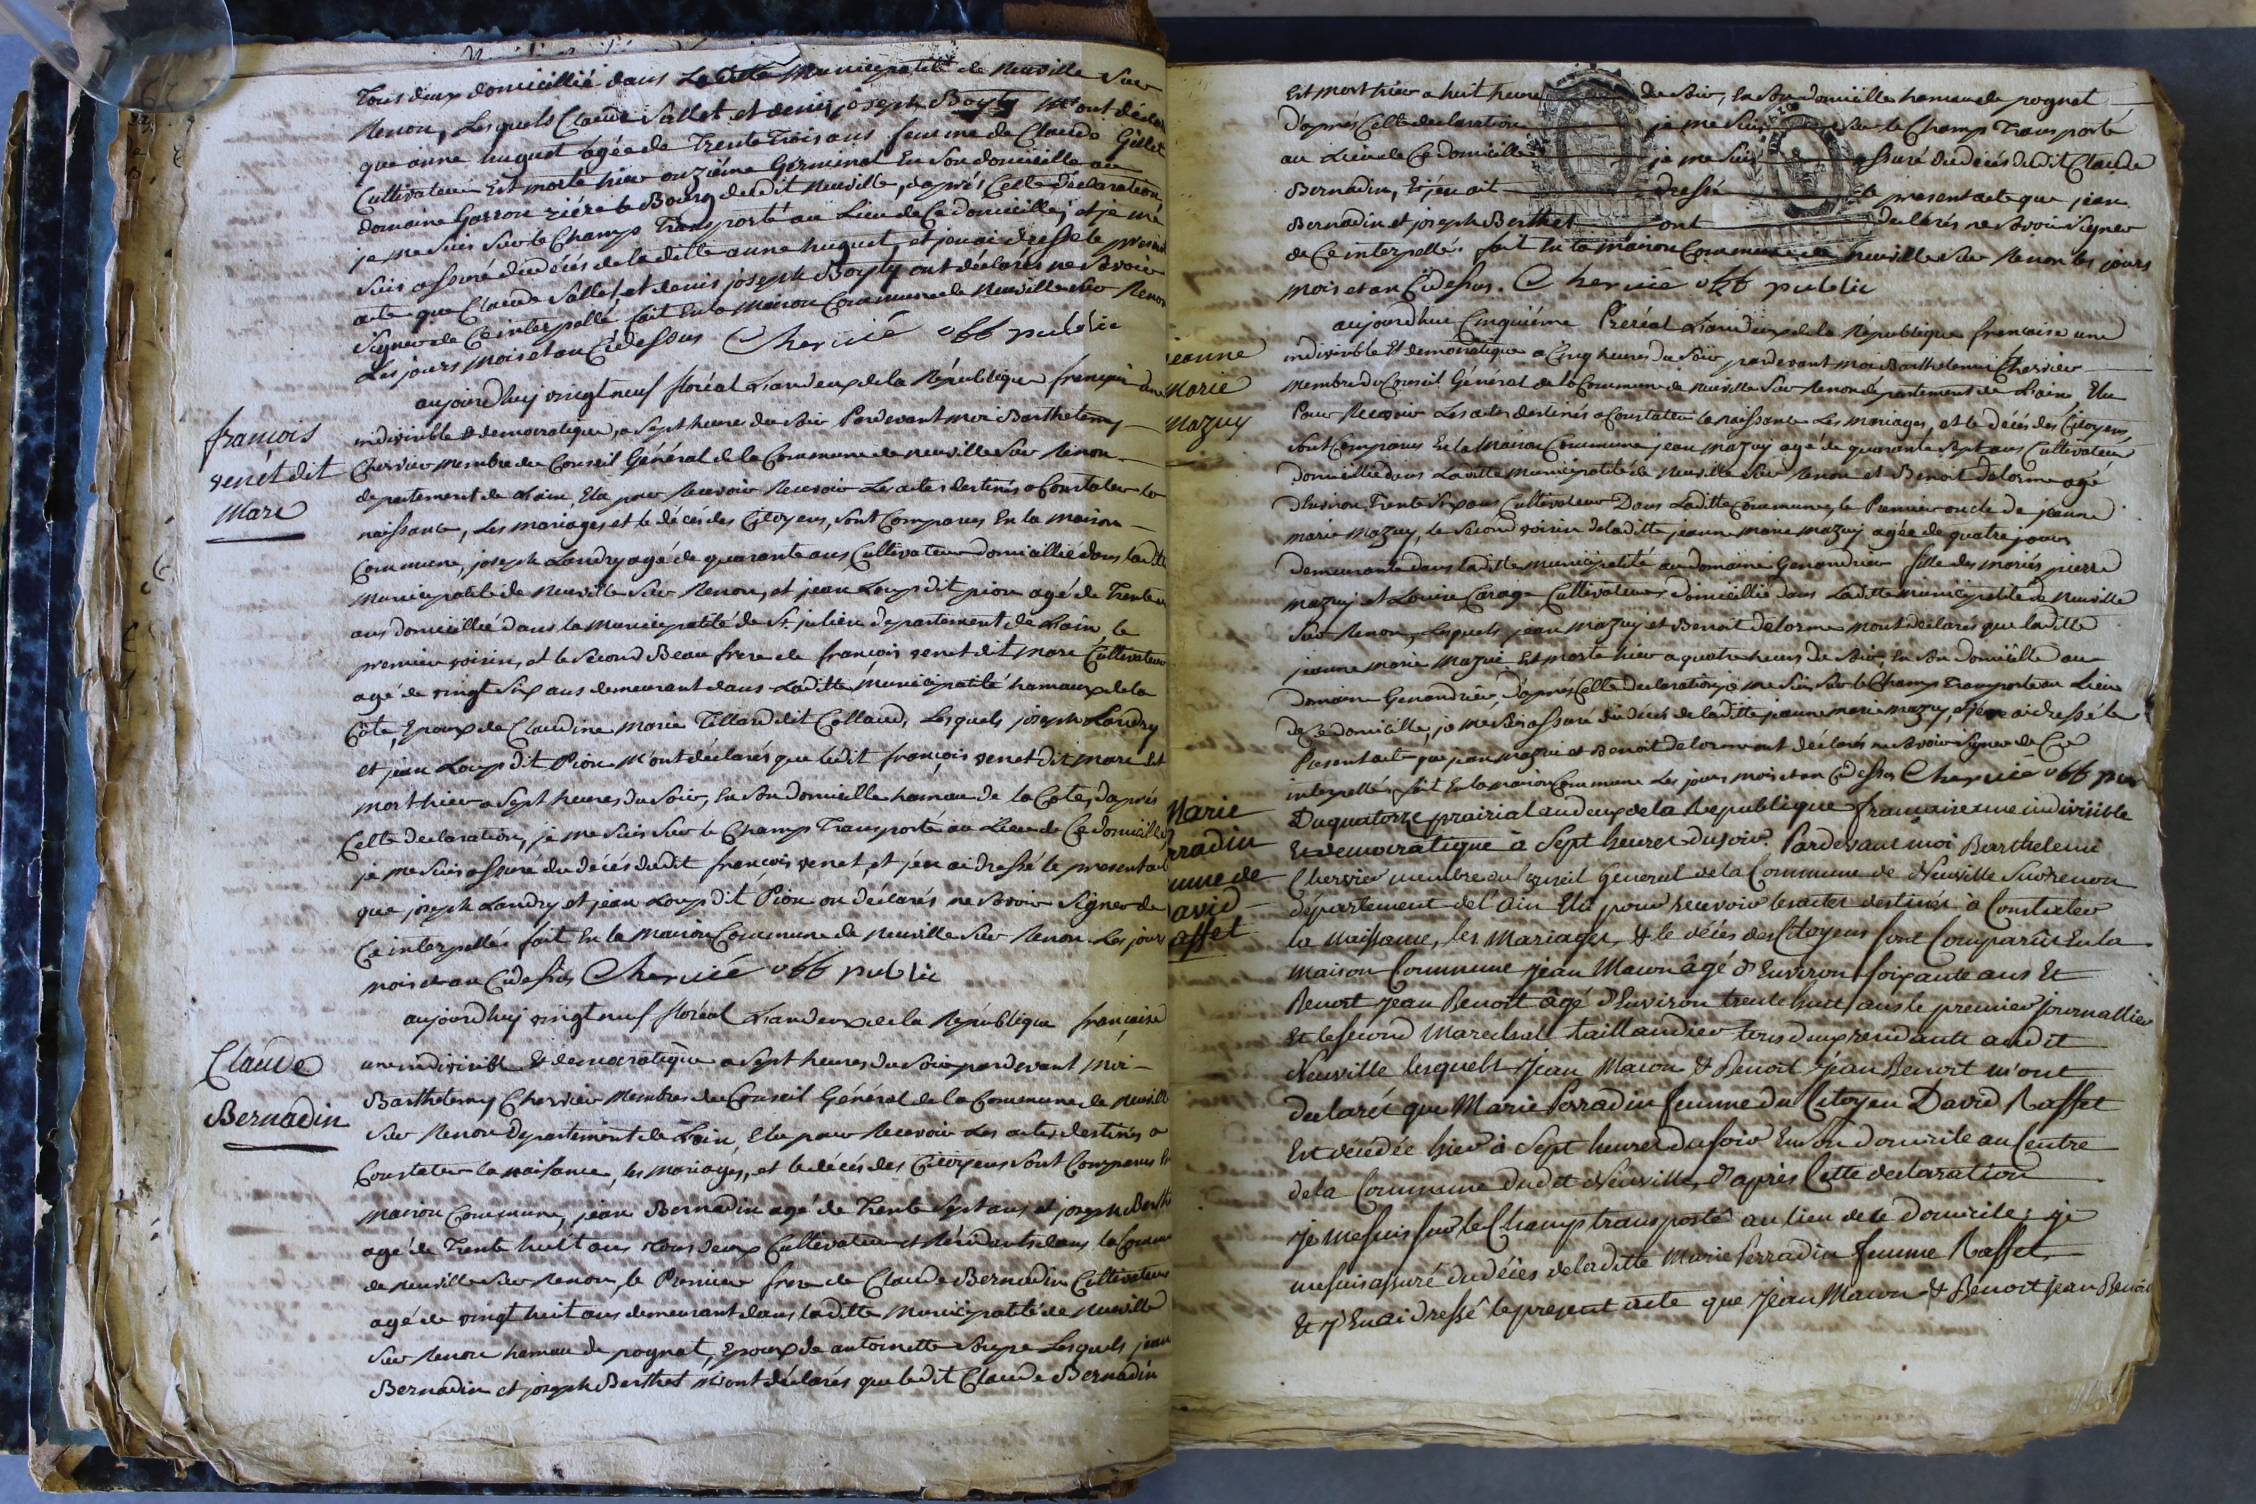 tous deux domicillié dans Laditte Municipalité de Neuville Sur
Renon, Lesquels Claude Sallet et denis joseph Boyty M'ont déclaré
que anne huguet agée de Trente Trois ans femme de Claude Gillet
Cultivateur Est morte hier onzième Germinal En Son domicille au
domaine Garron rière le Bourg dudit Neuville, daprés Cette déclaration,
je me Suis Sur le Champ Transporté au Lieu de Ce domicille, et je me
Suis assuré du décés de la ditte anne huguet, et jen ai dressé le present
acte que Claude Sallet et denis joseph Boyty ont déclarés ne Savoir
Signer de Ce interpellé fait En la Maison Commune de Neuville Sur Renon
Les jours mois et an Cy dessus Chervié off public
aujourdhuy vingt neuf floréal L'an deux de la République française une
françois
venet dit
Mare
indivisible & democratique, a Sept heures du Soir Pardevant moi Barthelemy
Chervier Membre du Conseil Général de la Commune de Neuville Sur Renon
departement de L'ain, Elu pour Recevoir Recevoir Les actes destinés a Constater la
naissance, Les mariages et le décés des Citoyens, Sont Comparus En la maison
Commune, joseph Landry agé de quarante ans Cultivateur domicillié dans laditte
Municipalité de Neuville Sur Renon, et jean Loup dit pion agé de Trente
ans domicillié dans la Municipalité de St julien departement de L'ain, le
premier voisin, et le Second Beau frere de françois venet dit mare Cultivateur
agé de vingt Six ans demeurant dans Laditte Municipalité hamaux de la
Côte, Epoux de Claudine Marie Tillard dit Colland, Lesquels joseph Landry
et jean Loup dit Pion M'ont déclarés que ledit françois venet dit mare Est
mort hier a Sept heures du Soir, En Son domicille hamau de la Côte, daprés
Cette declaration, je me Suis Sur le Champ Transporté au Lieu de Ce domicille,
je me Suis assuré du décés dudit françois venet, et jen ai dressé le present acte
que joseph Landry et jean Loup dit Pion on déclarés ne Savoir Signer de
Ce interpellés fait En la Maison Commune de Neuville Sur Renon Les jours
mois et an Cy dessus Chervié off public
aujourdhuy vingt neuf floréal L'an deux de la République française
Claude
Bernadin
une indivisible & democratique a Sept heures du Soir pardevant moi
Barthelemy Chervier Membres du Conseil Général de la Commune de Neuville
Sur Renon departement de L'ain, Elu pour Recevoir Les actes destinés a
Constater la naisance, les mariages, et le décés des Citoyens Sont Comparus En
maison Commune, jean Bernadin agé de Trente Sept ans et joseph Berth
agé de Trente huit ans tous deux Cultivateur et Résidants dans la Comm
de Neuville Sur Renon, le Premier frere de Claude Bernadin Cultivateur
agé de vingt huit ans demeurant dans laditte Municipalité de Neuville
Sur Renon hamau de pognat, Epoux de antoinette Soupe Lesquels jean
Bernadin et joseph Berthet m'ont déclarés que ledit Claude Bernadin
Est mort hier a huit heure du Soir, En Son domicille hamau de pognat
daprés Cette declaration je me Suis Sur le Champ Transporté
au Lieu de Ce domicille je me Suis assuré du décés dudit Claude
Bernadin, Et jen ait dressé le present acte que jean
Bernadin et joseph Berthet ont declarés ne Savoir Signer
de Ce interpellés fait En la maison Commune de Neuville Sur Renon les jours
mois et an Cy dessus. Chervié off public
aujourdhui Cinquième Preréal L'an deux de la République française une
jeanne
Marie
Mazuy
indivisible Et democratique a Cinq heures du Soir, pardevant moi Barthelemi Chervier
Membre du Conseil Général de la Commune de Neuville Sur Renon departement de L'ain, Elu
Pour Recevoir Les actes destinés a Constater la naissance Les mariages, et le décés des Citoyens,
Sont Comparus En la Maison Commune jean Mazuy agé de quarante Sept ans Cultivateur
domicillié dans Laditte Municipalité de Neuville Sur Renon et Benoit Delorme agé
d'Environ Trente Six ans Cultivateur Dans Laditte Commune, le Premier oncle de jeanne
marie Mazuy, le Second voisin de laditte jeanne marie Mazuy agée de quatre jours
demeurante dans laditte municipalité au domaine Genandrier fille des mariés pierre
Mazuy et Louise Carage Cultivateurs domicillié dans Laditte Municipalité de Neuville
Sur Renon, Lesquels jean Mazuy et Benoit Delorme m'ont declarés que laditte
jeanne marie Mazui Est morte hier a quatre heures du Soir, En Son domicille au
domaine Genandrier, daprés Cette declaration, je me Suis Sur le Champ Transporté au Lieu
de Ce domicille, je me Suis assuré du décés de laditte jeanne marie mazuy, et j'en ai dressé le
Present acte que jean mazui et Benoit delorme ont déclarés ne Savoir Signer de Ce
interpellés fait En la maison Commune Les jours mois et an Cy dessus Chervié off pu
Marie
rradin
mme de
avid
affet
Du quatorze prairial an deux de la Republique française une indivisible
Et democratique à Sept heures du soir. Pardevant moi Barthelemi
Chervier membre du Conseil General de la Commune de Neuville Sur renon
département de l'ain Elu pour recevoir les actes destinés à Constater
la Naissance, les Mariages, & le décès des Citoyens Sont Comparûs En la
Maison Commune Jean Macon âgé d'Environ soixante ans Et
Benoit Jean Benoit âgé d'Environ trente huit ans le premier journallier
Et le second Marechal taillandier tous deux residants audit
Neuville lesquels Jean Macon & Benoit Jean Benoit m'ont
declaréz que Marie Perradin femme du Citoyen David Raffet
Est décédée hier à Sept heures du soir En Son domicile au Centre
de la Commune dudit Neuville, d'après Cette declaration
je me suis sur le Champ transporté au lieu de Ce Domicile; je
me suis assuré du décés de laditte Marie Perradin femme Raffet
Et j'En ai dressé le present acte que Jean Macon & Benoit Jean Benoit